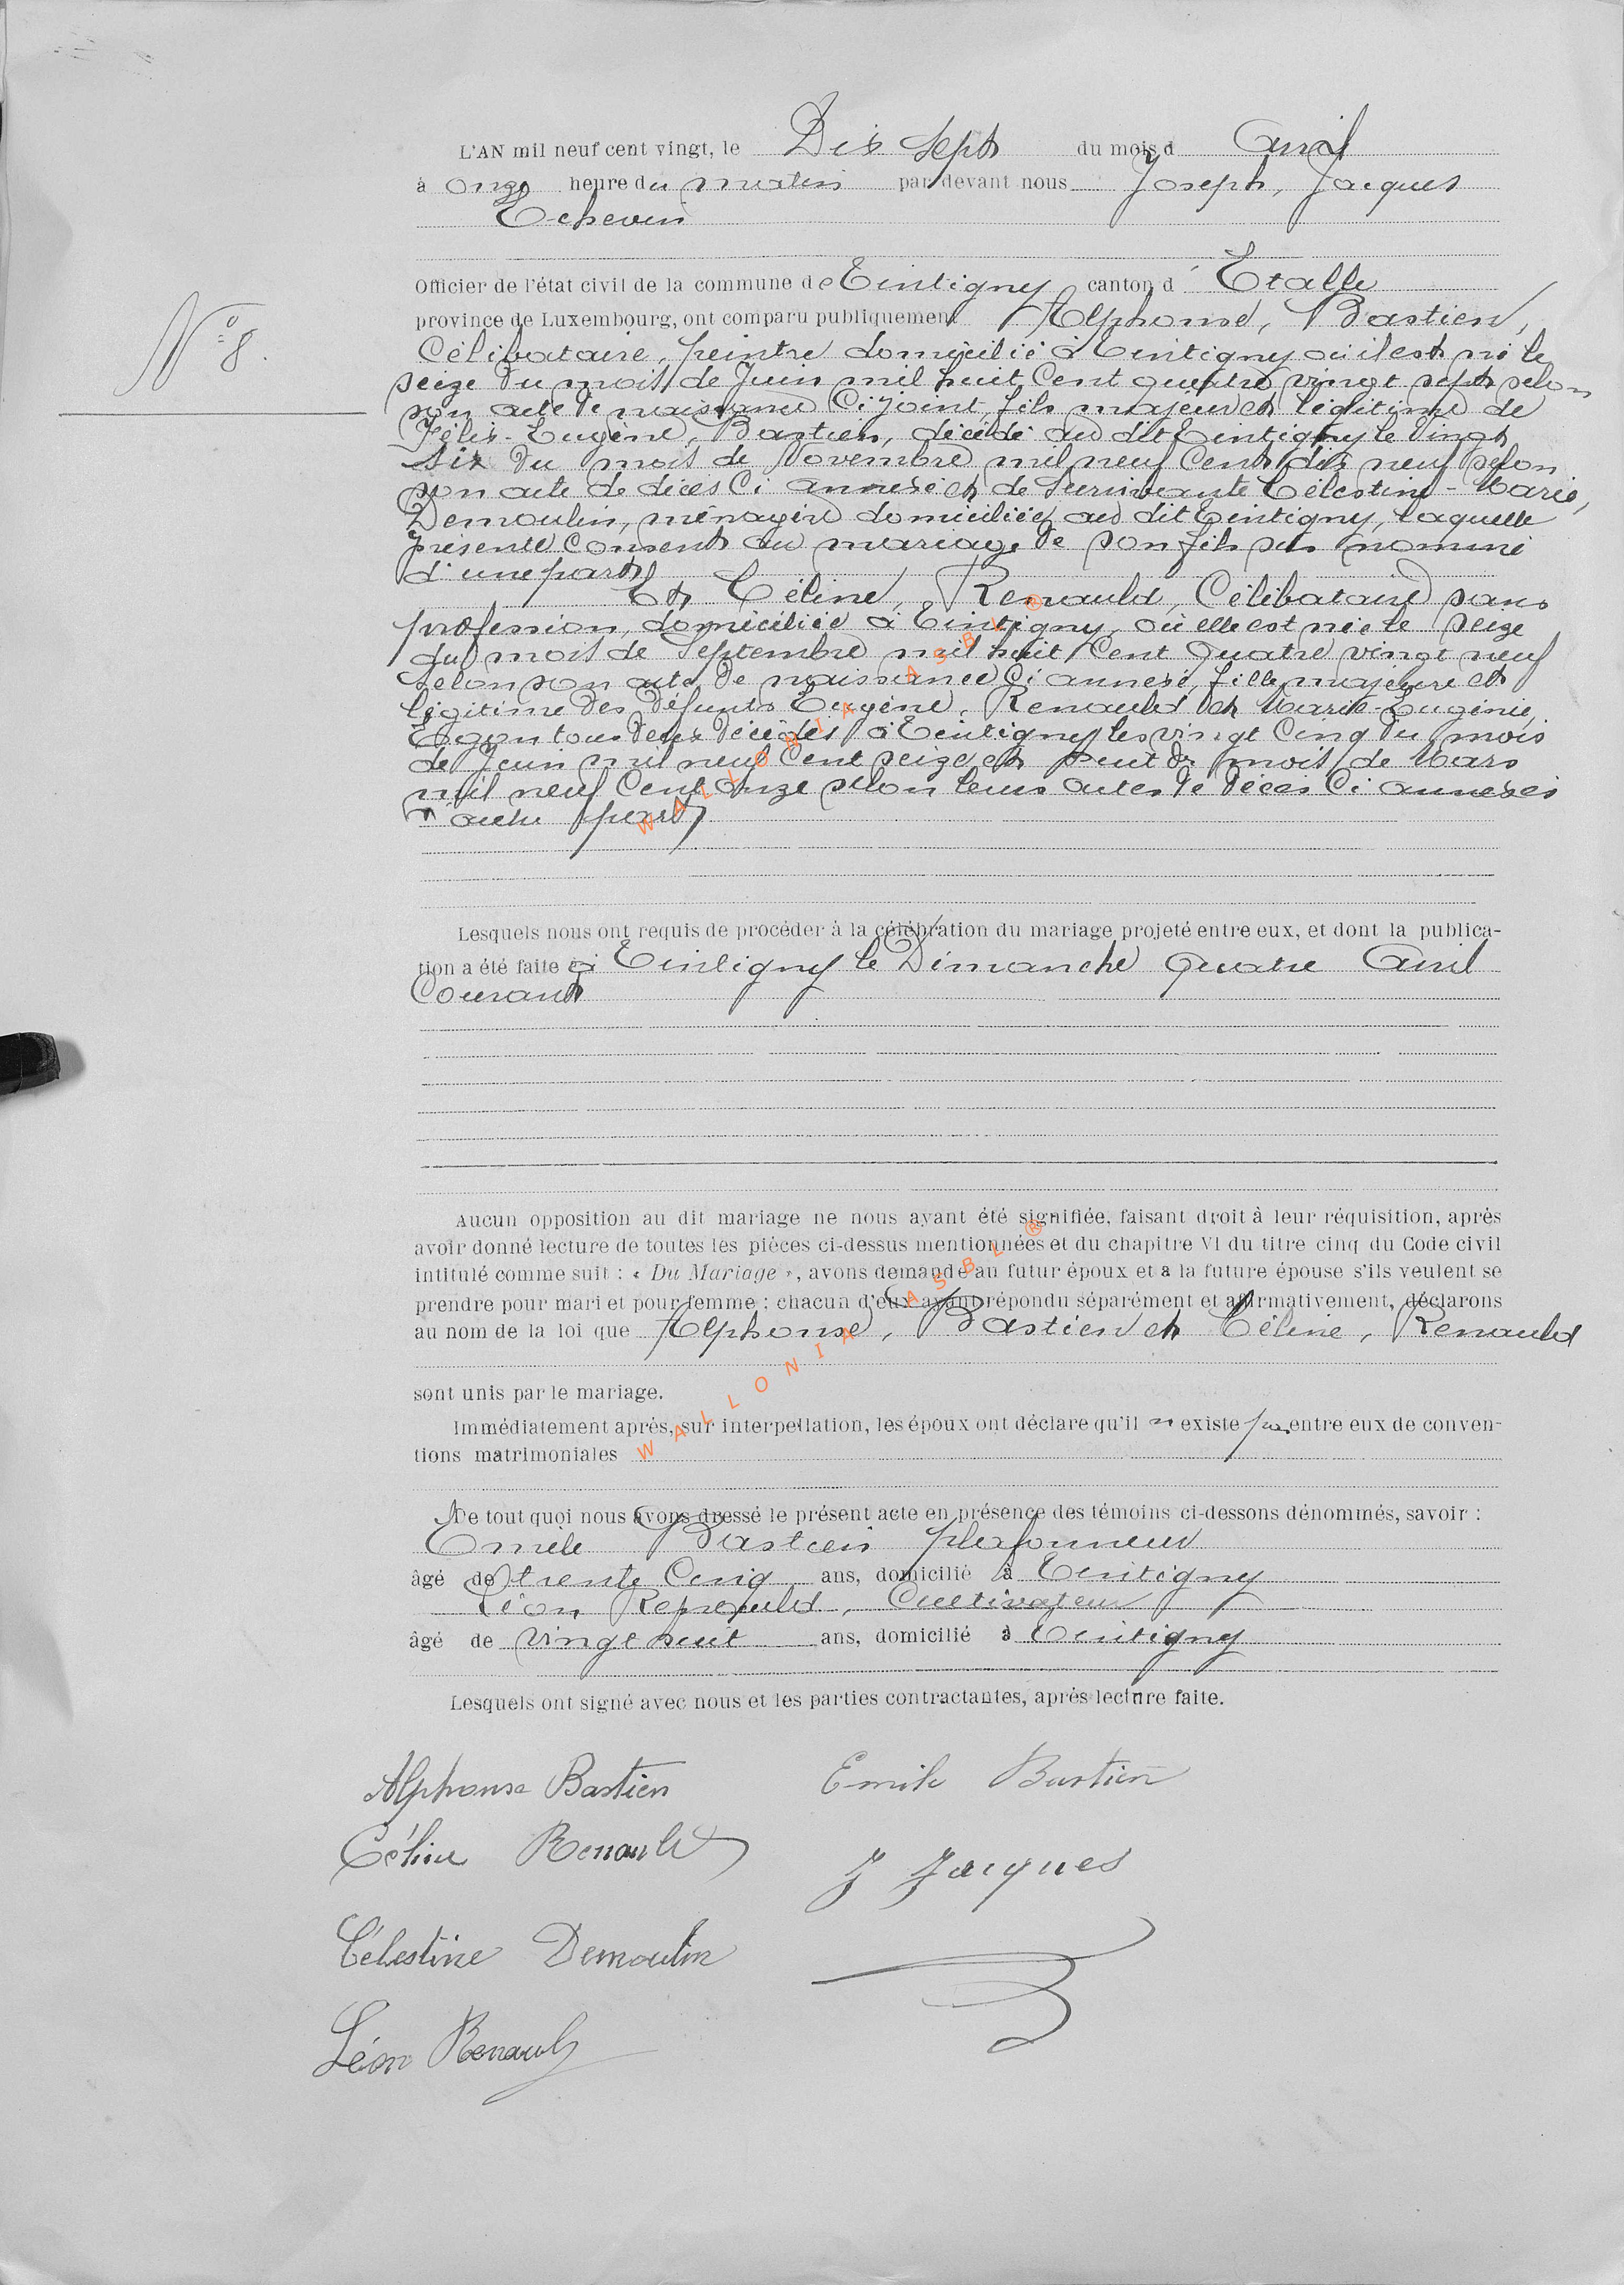 L'AN mil neuf cent vingt, le Dix Sept du mois d Avril
à onze heure du matin par devant nous Joseph, Jacques
Echevin
Officier de l'état civil de la commune de Tintigny canton d' Etalle
N° 8.
province de Luxembourg, ont comparu publiquement Alphonse, Bastien,
Célibataire, peintre domicilié à Tintigny où il est né le
seize du mois de Juin mil huit Cent quatre vingt sept selon
son acte de naissance Ci joint, fils majeur et légitime de
Félix-Eugène, Bastien, décédé au dit Tintigny le vingt
six du mois de Novembre mil neuf Cent dix neuf selon
son acte de décès Ci annexé et de survivante Célestine-Marie,
Demoulin, ménagère domiciliée au dit Tintigny, laquelle
présente Consent au mariage de son fils sus nommé
d'une part
Et Céline, Renauld, Célibataire sans
profession, domiciliée à Tintigny, où elle est née le seize
du mois de Septembre mil huit Cent Quatre vingt neuf
selon son acte de naissance Ci annexé, fille majeure et
légitime des défunts Eugène, Renauld et Marie-Eugénie,
tous deux décédés à Tintigny les vingt Cinq du mois
de Juin mil neuf Cent seize et huit du mois de Mars
mil neuf Cent onze selon leurs actes de décès Ci annexés
d'autre part
Lesquels nous ont requis de procéder à la célébration du mariage projeté entre eux, et dont la publica-
tion a été faite à Tintigny le Dimanche Quatre Avril
Courant
Aucun opposition au dit mariage ne nous ayant été signifiée, faisant droit à leur réquisition, après
avoir donné lecture de toutes les pièces ci-dessus mentionnées et du chapitre VI du titre cinq du Code civil
intitulé comme suit : « Du Mariage », avons demandé au futur époux et à la future épouse s'ils veulent se
prendre pour mari et pour femme ; chacun d'eux ayant répondu séparément et affirmativement, déclarons
au nom de la loi que Alphonse, Bastien et Céline, Renauld
sont unis par le mariage.
Immédiatement après, sur interpellation, les époux ont déclare qu'il n existe pas entre eux de conven-
tions matrimoniales
De tout quoi nous avons dressé le présent acte en présence des témoins ci-dessons dénommés, savoir :
Emile Bastien plafonneur
âgé de trente Cinq ans, domicilié à Tintigny
Léon Renauld, Cultivateur
âgé de vingt huit ans, domicilié à Tintigny
Lesquels ont signé avec nous et les parties contractantes, après lecture faite.
Alphonse Bastien Emile Bastien
Céline Renauld J Jacques
Célestine Demoulin
Léon Renauld
WALLONIA ASBL ®
WALLONIA ASBL ®